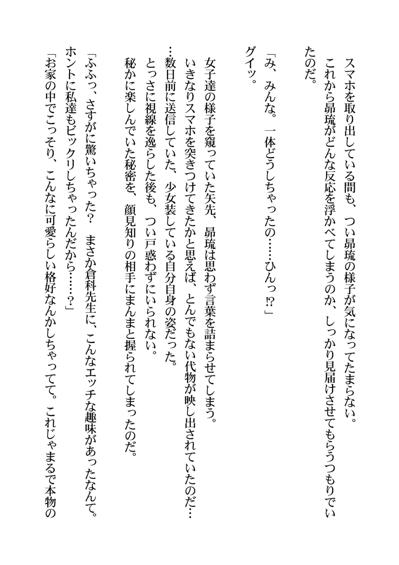 スマホを取り出している間も、つい昴琉の様子が気になってたまらない。
これから昴琉がどんな反応を浮かべてしまうのか、しっかり見届けさせてもらうつもりでい
たのだ。
「み、みんな。一体どうしちゃったの……ひんっ!?
グイッ。
女子達の様子を窺っていた矢先、昴琉は思わず言葉を詰まらせてしまう。
いきなりスマホを突きつけてきたかと思えば、とんでもない代物が映し出されていたのだ…
…数日前に送信していた、少女装している自分自身の姿だった。
とっさに視線を逸らした後も、つい戸惑わずにいられない。
秘かに楽しんでいた秘密を、顔見知りの相手にまんまと握られてしまったのだ。
「ふふっ、さすがに驚いちゃった？　まさか倉科先生に、こんなエッチな趣味があったなんて。
ホントに私達もビックリしちゃったんだから……？
「お家の中でこっそり、こんなに可愛らしい格好なんかしちゃってて。これじゃまるで本物の